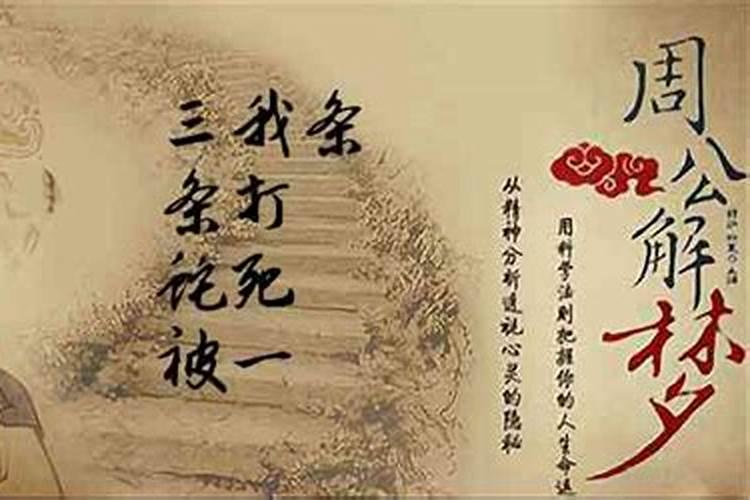 三条蛇被
我打死一
条
从精神分析道说心灵的隐秘
用科学法则把握你的人生命运
周公解梦